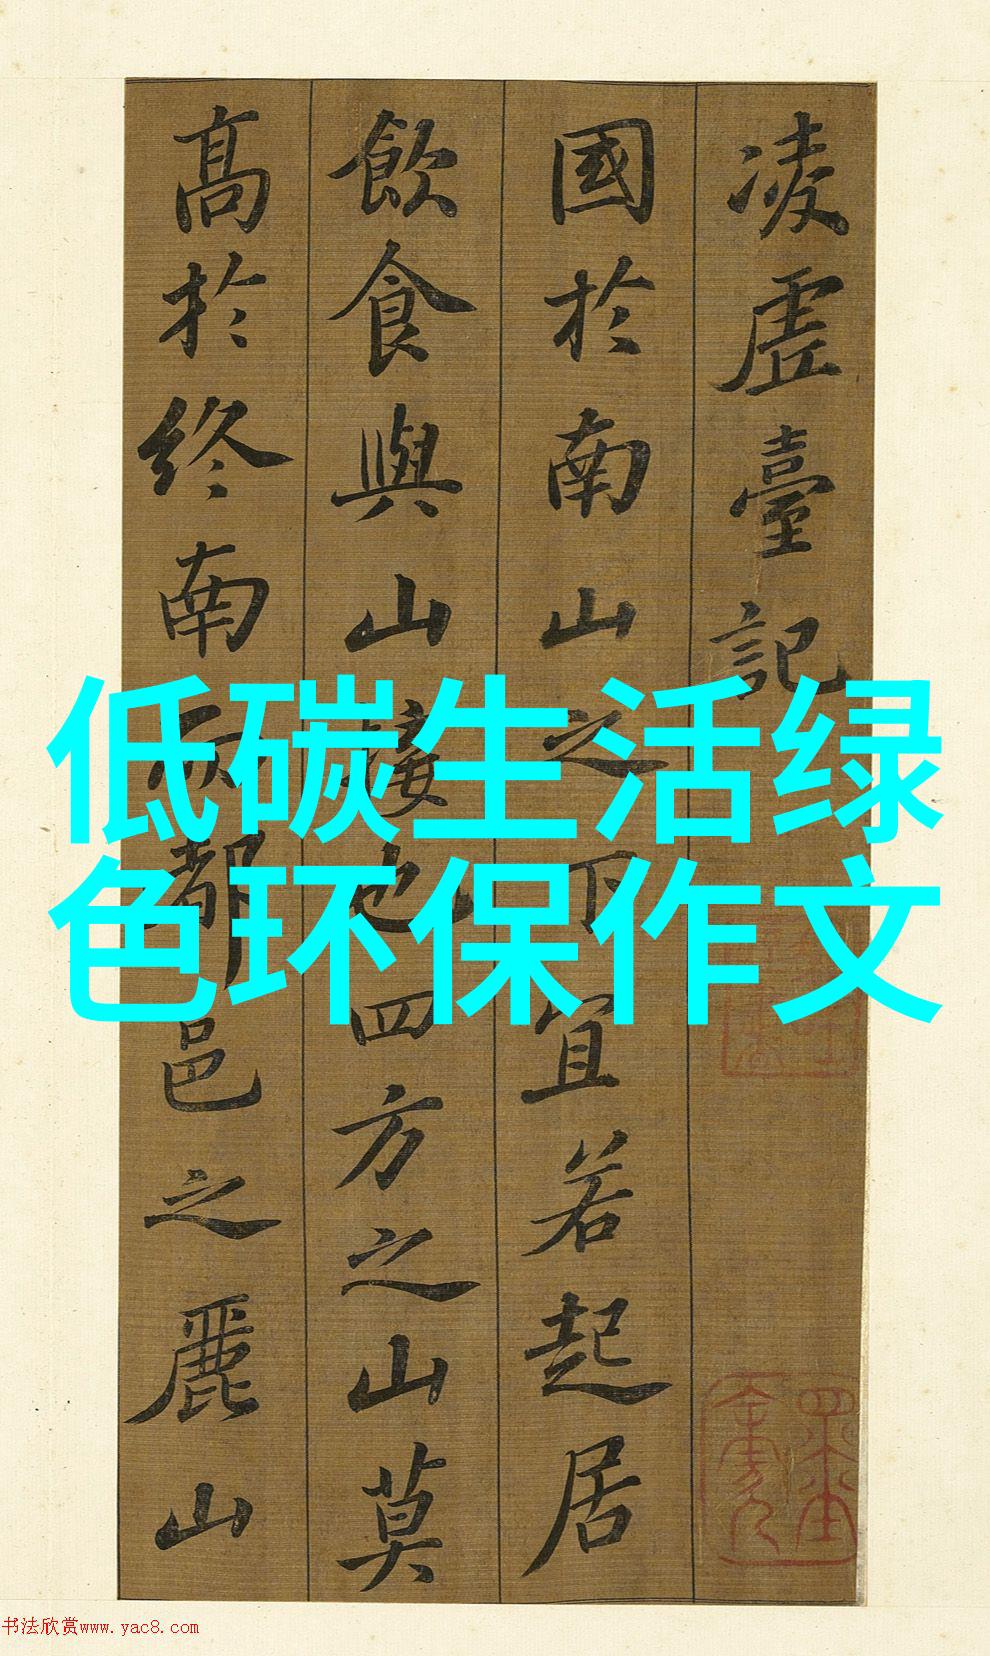 凌虛臺記
國於南山之下宜若起居
飲食與山接也四方之山莫
高於終南而都邑之麗山
低碳生活绿
色环保作文
书法欣赏www.yac8.com